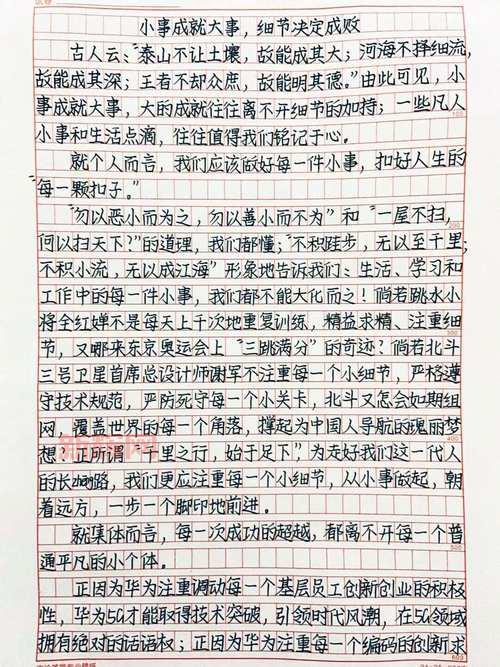 小事成就大事，细节决定成败
古人云、“泰山不让土壤，故能成其大；河海不择细流，
故能成其深；王者不却众庶，故能明其德。”由此可见，小
事成就大事，大的成就往往离不开细节的加持；一些凡人
小事和生活点滴，往往值得我们铭记于心。
就个人而言，我们应该做好每一件小事，扣好人生的
“每一颗扣子。”
“勿以恶小而为之，勿以善小而不为”和“一屋不扫，
何以扫天下？”的道理，我们都懂；“不积跬步，无以至千里；
不积小流，无以成江海”形象地告诉我们、生活、学习和
工作中的每一件小事，我们都不能大化而之！倘若跳水小
将全红婵不是每天上千次地重复训练，精益求精、注重细
节，又哪来东京奥运会上“三跳满分”的奇迹？倘若北斗
三号卫星首席总设计师谢军不注重每一个小细节，严格遵
守技术规范，严防死守每一个小关卡，北斗又怎会如期组
网，覆盖世界的每一个角落，撑起为中国人导航的瑰丽梦
想？正所谓“千里之行，始于足下”，为走好我们这一代人
的长小的路，我们更应注重每一个小细节，从小事做起，朝
着远方，一步一个脚印地前进。
就集体而言，每一次成功的超越，都离不开每一个普
通平凡的小个体。
正因为华为注重调动每一个基层员工创新创业的积极
性，华为5G才能取得技术突破，引领时代风潮，在5G领域
拥有绝对的话语权；正因为华为注重每一个编码的创新求